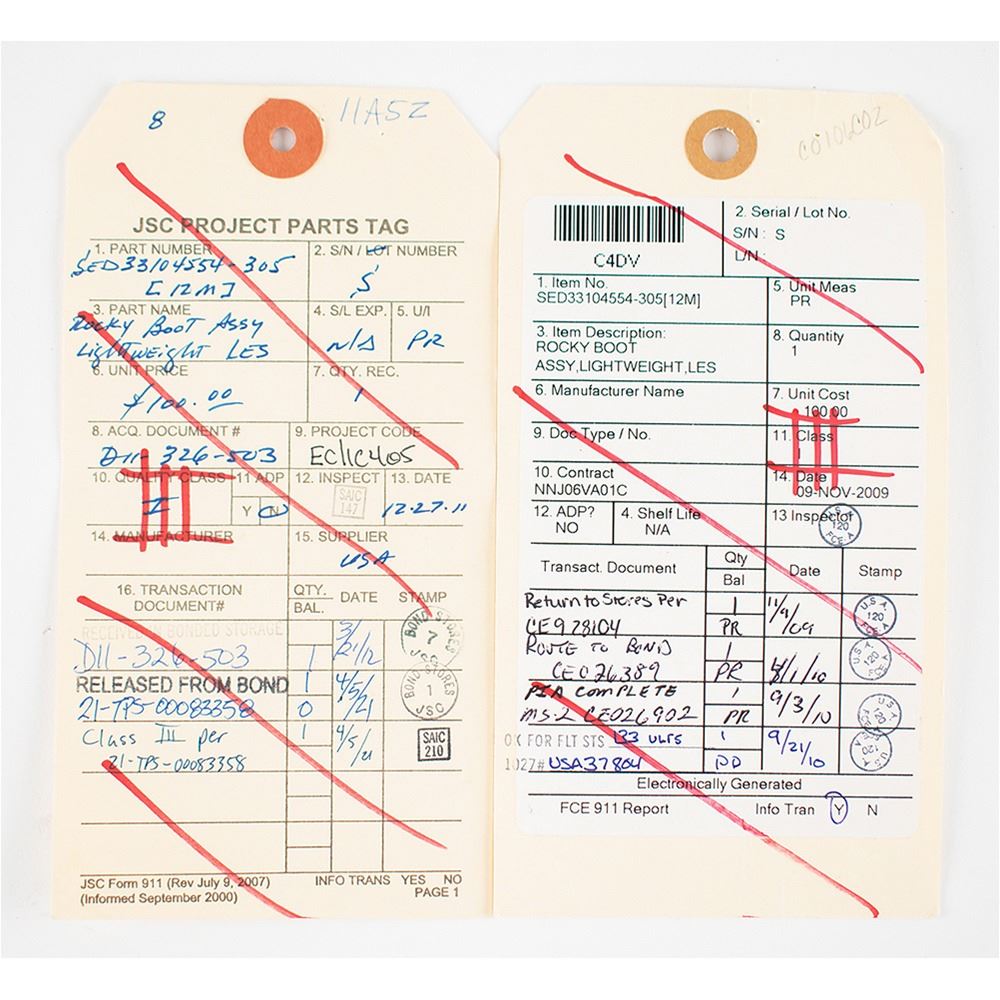 8
11A52
JSC PROJECT PARTS TAG
1. PART NUMBER
SED33104554-305
[12M]
2. S/N / LOT NUMBER
S
3. PART NAME
Rocky Boot Assy
Lightweight LES
4. S/L EXP.
N/A
5. U/I
PR
6. UNIT PRICE
$100.00
7. QTY. REC.
1
8. ACQ. DOCUMENT #
D11-326-503
9. PROJECT CODE
EC11C405
10. QUALITY CLASS
I
11 ADP
Y N
12. INSPECT
SAIC
147
13. DATE
12-27-11
14. MANUFACTURER
15. SUPPLIER
USA
16. TRANSACTION
DOCUMENT#
QTY.
BAL.
DATE
STAMP
RECEIVED IN BONDED STORAGE
D11-326-503
1
BOND STORES
7
JSC
RELEASED FROM BOND
21-TPS-00083358
1
0
4/5/21
BOND STORES
1
JSC
Class III per
21-TPS-00083358
1
4/5/21
SAIC
210
JSC Form 911 (Rev July 9, 2007)
(Informed September 2000)
INFO TRANS YES NO
PAGE 1
C4DV
2. Serial / Lot No.
S/N : S
L/N :
1. Item No.
SED33104554-305[12M]
5. Unit Meas
PR
3. Item Description:
ROCKY BOOT
ASSY,LIGHTWEIGHT,LES
8. Quantity
1
6. Manufacturer Name
7. Unit Cost
100.00
9. Doc Type / No.
11. Class
I
10. Contract
NNJ06VA01C
14. Date
09-NOV-2009
12. ADP?
NO
4. Shelf Life
N/A
13 Inspector
U.S.A
120
FCE-A
Transact. Document
Qty
Bal
Date
Stamp
Return to Stores Per
CE928104
1
PR
11/9/09
U.S.A
120
FCE-A
Route to Bond
CE026389
1
PR
8/11/10
U.S.A
120
PIA COMPLETE
MS-2 CE026902
1
PR
9/3/10
U.S.A
120
OK FOR FLT STS 133 ULF5
1027# USA37804
1
9/21/10
U.S.A
120
Electronically Generated
FCE 911 Report
Info Tran Y N